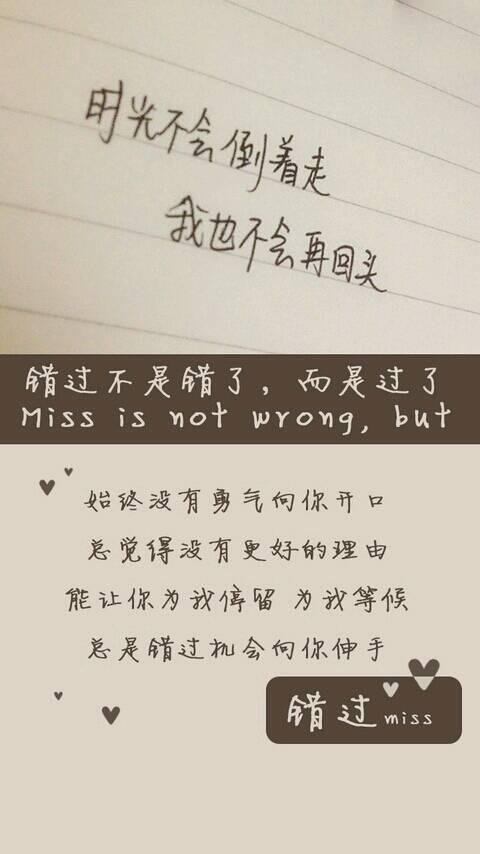 时光不会倒着走
我也不会再回头
错过不是错了，而是过了
Miss is not wrong, but
始终没有勇气向你开口
总觉得没有更好的理由
能让你为我停留 为我等候
总是错过机会向你伸手
错过miss